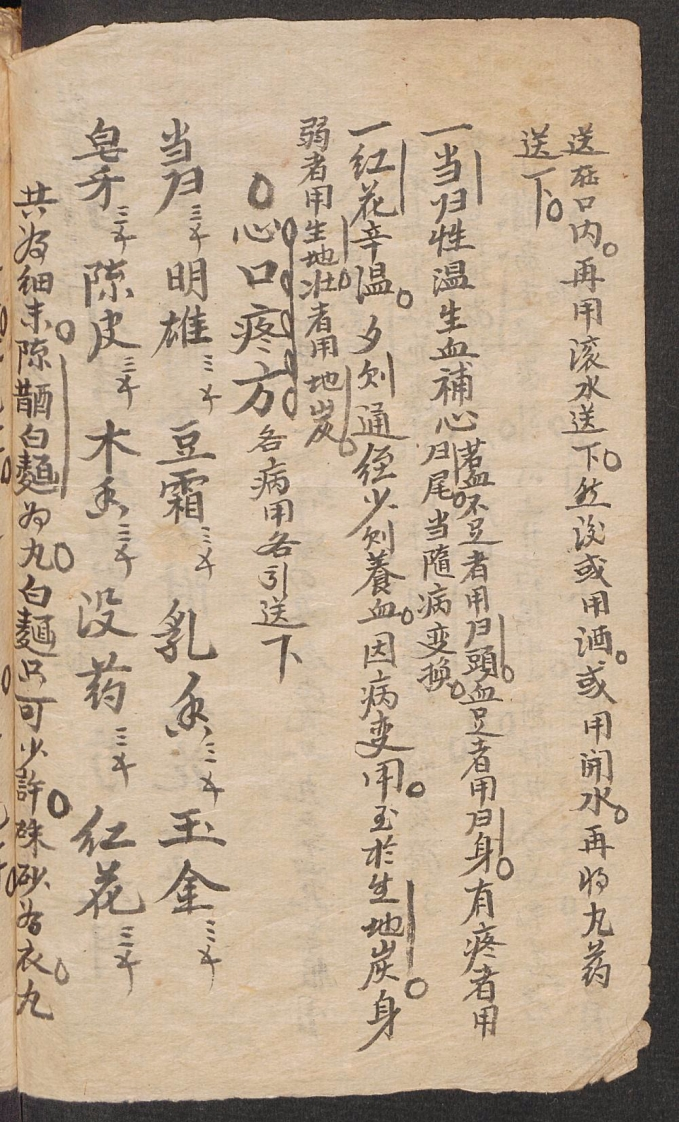 送在口内。再用滚水送下。然後或用酒。或用開水。再將丸药
送下。
一当归性温生血補心蓋血不足者用归頭。血足者用归身。有疼者用
归尾。当隨病变換。
一红花辛温。多则通经少则養血。因病变用。至於生地炭。身
弱者用生地。壮者用地炭。
○心口疼方 各病用各引送下
当归三千 明雄三千 豆霜三千 乳香三千 玉金三千
皂牙三千 陈皮三千 木香三千 没药三千 红花三千
共为细末。陳醋白麵为丸。白麵只可少許。硃砂为衣。丸